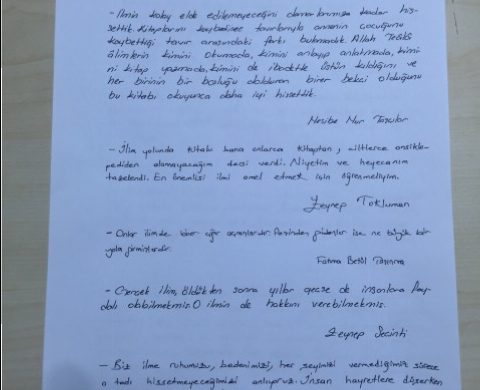 - İlmin kolay elde edilemeyeceğini damarlarımıza kadar his-
settik. Kitaplarını kaybedince tavırlarıyla annenin çocuğunu
kaybettiği tavır arasındaki farkı bulamadık. Allah Teâlâ
âlimlerin kimini okumada, kimini anlayıp anlatmada, kimi-
ni kitap yazmada, kimini de ibadetle üstün kıldığını ve
her birinin bir boşluğu dolduran birer bekçi olduğunu
bu kitabı okuyunca daha iyi hissettik.
Nesibe Nur
- İlim yolunda kitabı bana onlarca kitaptan, ciltlerce ansiklo-
pediden alamayacağım dersi verdi. Niyetim ve heyecanım
tazelendi. En önemlisi ilmi amel etmek için öğrenmeliyim.
Zeynep Tokluman
- Onlar ilimde birer çığır açanlardır. Peşinden gidenler ise ne büyük bir
yola girmişlerdir.
Fatma Betül
- Gerçek ilim, öldükten sonra yıllar geçse de insanlara fay-
dalı olabilmekmiş. O ilmin de hakkını verebilmekmiş.
Zeynep
- Biz ilme ruhumuzu, bedenimizi, her şeyimizi vermediğimiz sürece
o tadı hissetmeyeceğimizi anlıyoruz. İnsan hayretlere düşerken